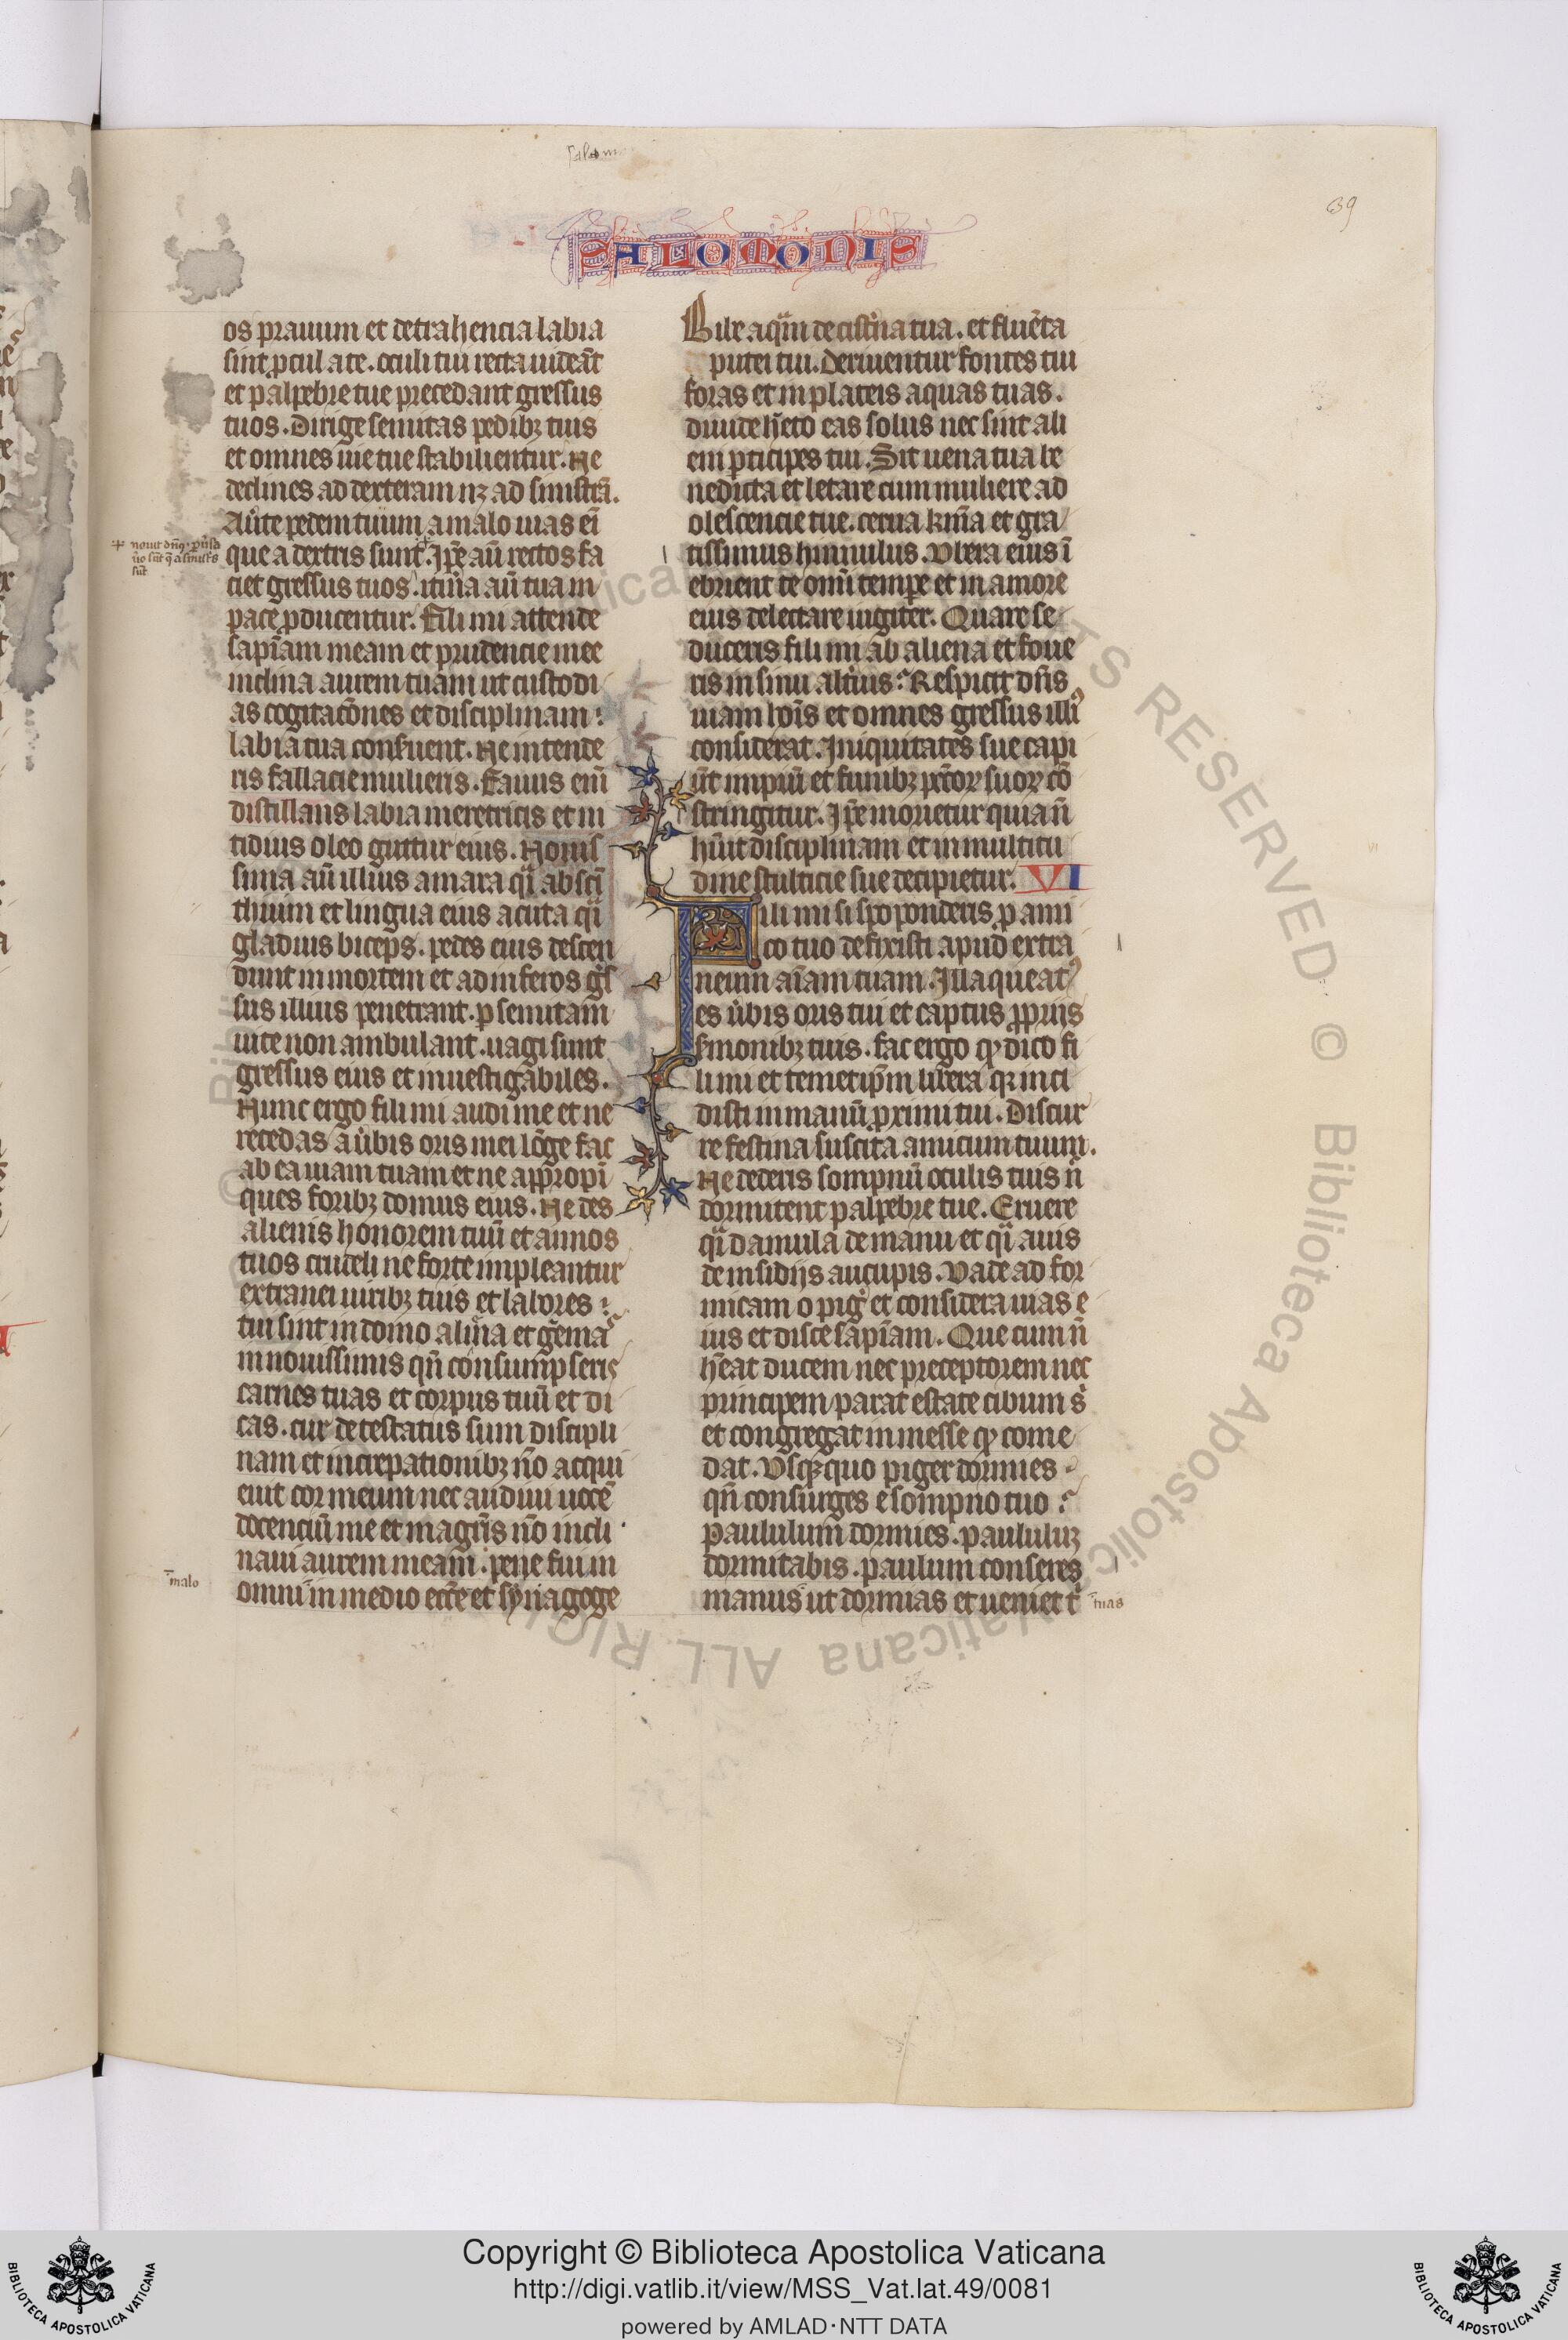 39
SALOMONIS
os prauum et detrahencia labia
sint ꝓcul a te. oculi tui recta uideāt
et palpebre tue precedant gressus
tuos. Dirige semitas pedibꝫ tuis
et omnes uie tue stabilientur. Ne
declines ad dexteram nꝫ ad sinistrā.
Auͦte pedem tuum a malo uias eī
que a dextris sunt. Ip̄e aū rectos fa
ciet gressus tuos. itiña aū tua in
pace ꝓducentur. Fili mi attende
sapīam meam et prudencie mee
inclina aurem tuam ut custodi
as cogitac̄ones et disciplinam:
labia tua conseruent. Ne intende
ris fallacie mulieris. Fauus enī
distillans labia meretricis et ni
tidius oleo guttur eius. Nouis
sima aū illius amara qͣi absci
thium et lingua eius acuta qͣi
gladius biceps. pedes eius descen
dunt in mortem et ad inferos g̃s
sus illius penetrant. ꝑ semitam
uite non ambulant. uagi sunt
gressus eius et inuestigabiles.
Nunc ergo fili mi audi me et ne
recedas a ủbis oris mei lōge fac
ab ea uiam tuam et ne app̃ropī
ques foribꝫ domus eius. Ne des
alienis honorem tuū et annos
tuos crudeli ne forte impleantur
extranei uiribꝫ tuis et labores:
tui sint in domo aliēna et gemas
in nouissimis qn̄ consumpseris
carnes tuas et corpus tuū et di
cas. cur detestatus sum discipli
nam et increpationibꝫ nō acqui
euit cor meum nec audiui uocē
docenciū me et magr̄is nō incli
naui aurem meam. pene fui in
omni in medio ecc̄e et synagoge
malo
Bibe aquā de cisťna tua. et fluēta
putei tui. Deriuentur fontes tui
foras et in plateis aquas tuas.
diuide h̄eto eas solus nec sint ali
eni ꝑticipes tui. Sit uena tua be
nedicta et letare cum muliere ad
olescencie tue. cerua k̄ma et gra
tissimus hinnulus. Vbera eius ī
ebrient te om̄i temp̄e et in amore
eius delectare iugiter. Quare se
duceris fili mi ab aliena et foue
ris in sinu altĩus? Respicit dn̄s
uiam hoīs et omnes gressus illiꝰ
considerat. Iniquitates sue capi
ūt impiū et funibꝫ pc̄toꝝ suoꝝ cō
stringitur. Ip̄e morietur quia n̄
h̄uit disciplinam et in multitu
dine stulticie sue decipietur. VI
Fili mi si spoponderis ꝓ ami
co tuo defixisti apud extra
neum aīam tuam. Illaqueatꝰ
es ủbis oris tui et captus ꝓpriis
s̄monibꝫ tuis. fac ergo qͦ dico fi
li mi et temetip̄m libera qꝛ inci
disti in manū ꝓximi tui. Discur
re festina suscita amicum tuum.
Ne dederis sompnū oculis tuis n̄
dormitent palpebre tue. Eruere
qͣi damula de manu et qͣi auis
de insidiis aucupis. Vade ad for
micam o pigẽ et considera uias e
ius et disce sapīam. Que cum n̄
h̄eat ducem nec preceptorem nec
principem parat estate cibum s̉
et congregat in messe qͦ come
dat. Vsqꝫquo piger dormies
qn̄ consurges e sompno tuo?
Paululum dormies. paululuꝫ
dormitabis. paulum conseres
manus ut dormias et ueniet t̉
mas
Copyright © Biblioteca Apostolica Vaticana
http://digi.vatlib.it/view/MSS_Vat.lat.49/0081
powered by AMLAD·NTT DATA
BIBLIOTECA APOSTOLICA VATICANA
BIBLIOTECA APOSTOLICA VATICANA
© Biblioteca Apostolica Vaticana ALL RIGHTS RESERVED